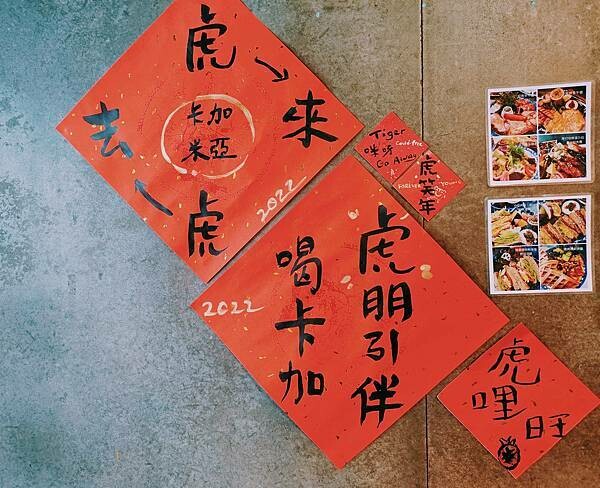 虎
來
虎
去
卡加
米亞
2022
Tiger
Go Away
虎笑年
FOREVER
YOUNG
虎朋引伴
喝卡加
2022
虎
哩
旺